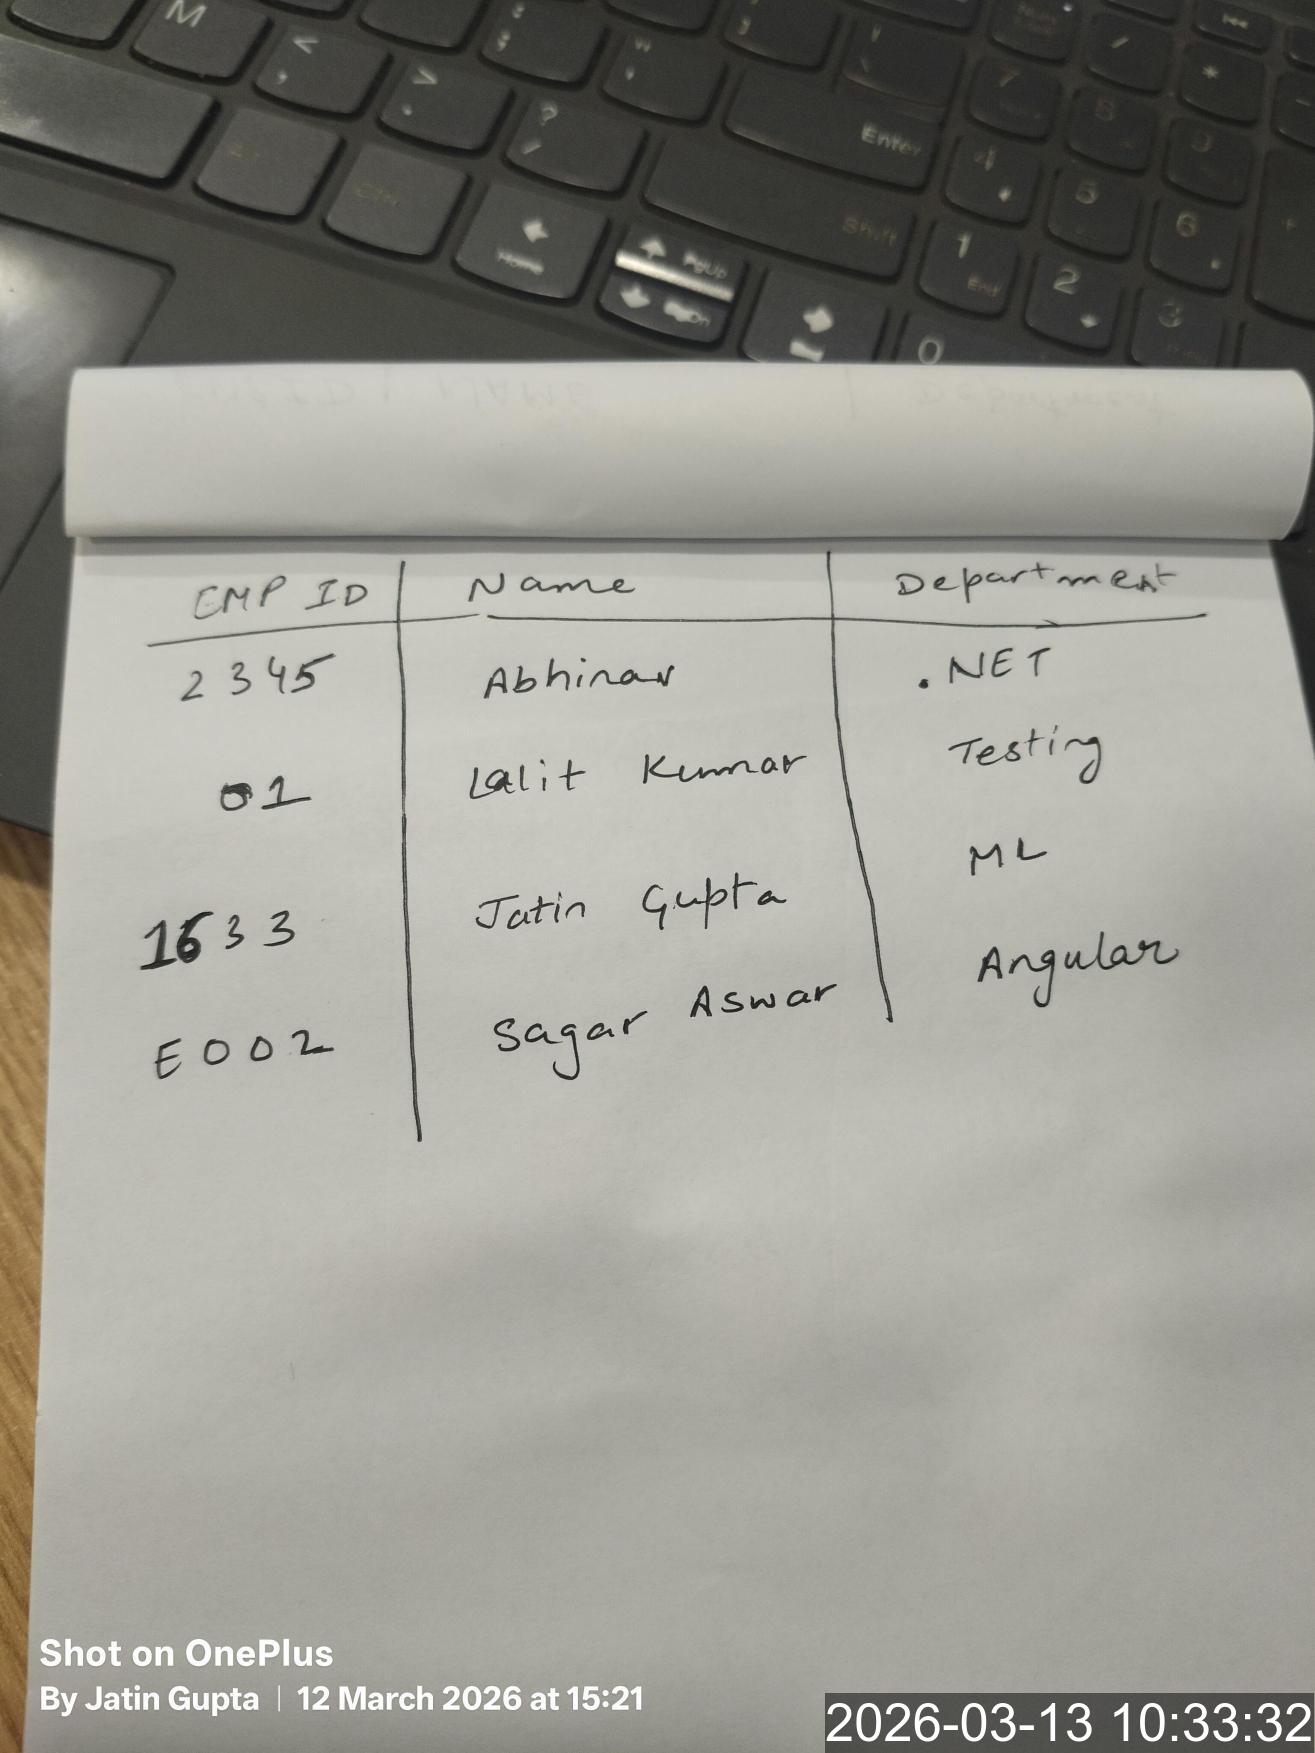 EMP ID Name Department
2345 Abhinav .NET
01 Lalit Kumar Testing
1633 Jatin Gupta ML
E002 Sagar Aswar Angular
Shot on OnePlus
By Jatin Gupta | 12 March 2026 at 15:21
2026-03-13 10:33:32